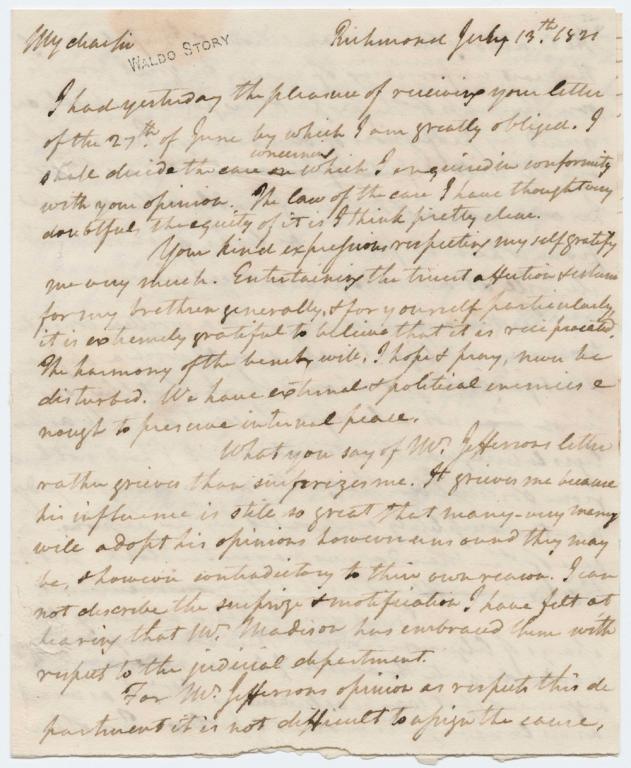 My dear Sir
WALDO STORY
Richmond July 13th. 1821
I had yesterday the pleasure of receiving your letter
of the 27th. of June by which I am greatly obliged. I
concerning
shall decide the case on which I enquired in conformity
with your opinion. The law of the case I have thought very
doubtful, the equity of it is I think pretty clear.
Your kind expressions respecting myself gratify
me very much. Entertaining the truest affection & esteem
for my brethren generally, & for yourself particularly,
it is extremely grateful to believe that it is reciprocated.
The harmony of the bench will, I hope & pray, never be
disturbed. We have external & political enemies e
nough to preserve internal peace.
What you say of Mr. Jeffersons letter
rather grieves than surprizes me. It grieves me because
his influence is still so great that many- very many
will adopt his opinions however unsound they may
be, & however contradictory to their own reason. I can
not describe the surprize & mortification I have felt at
hearing that Mr. Madison has embraced them with
respect to the judicial department.
For Mr. Jeffersons opinion as respects this de
partment it is not difficult to assign the cause.